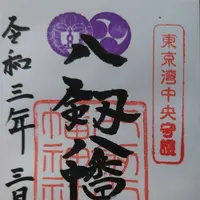 東京湾中央守護
八剱八幡
令和三年三月